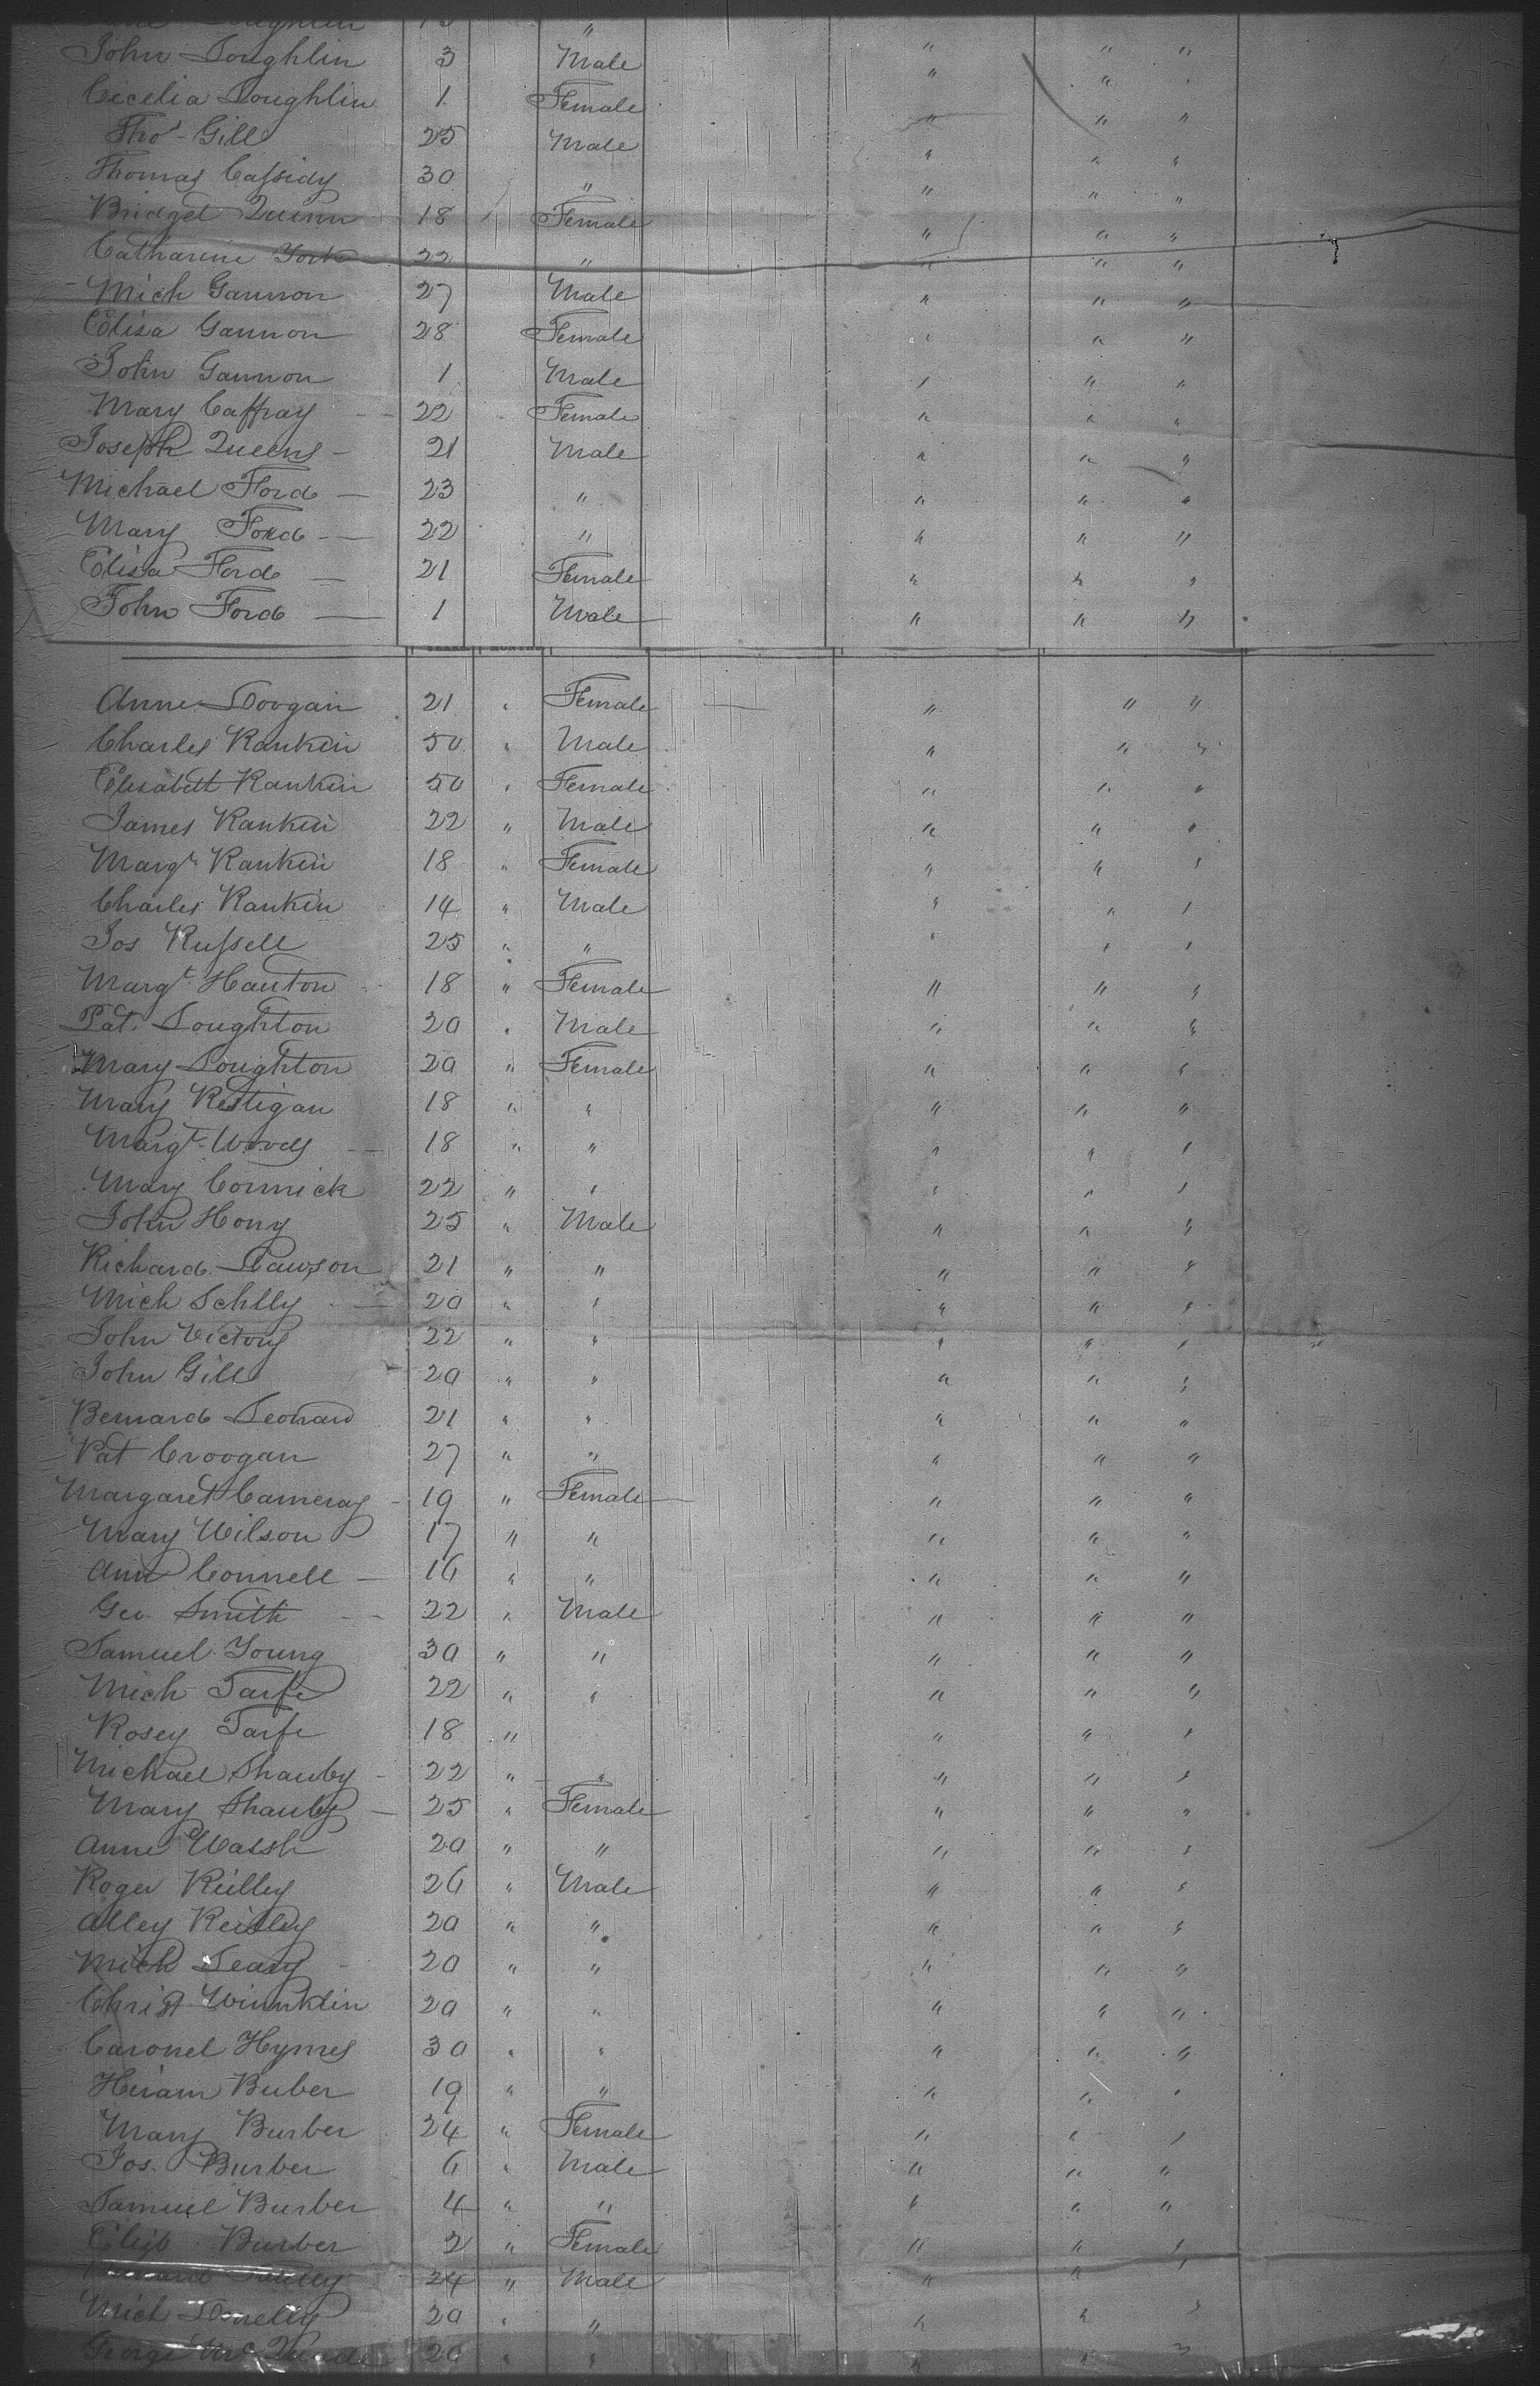 Loughlin 13 "
John Loughlin 3 Male " " "
Cecelia Loughlin 1 Female " " "
Thos Gill 25 Male " " "
Thomas Cassidy 30 " " " "
Bridget Quinn 18 Female " " "
Catharine York 22 " " " "
Mich Gannon 27 Male " " "
Elisa Gannon 28 Female " " "
John Gannon 1 Male " " "
Mary Caffray 22 Female " " "
Joseph Queens 21 Male " " "
Michael Ford 23 " " " "
Mary Ford 22 " " " "
Elisa Ford 21 Female " " "
John Ford 1 Male " " "
Anne Doogan 21 " Female " " "
Charles Rankin 50 " Male " " "
Elisabett Rankin 50 " Female " " "
James Rankin 22 " Male " " "
Margt Rankin 18 " Female " " "
Charles Rankin 14 " Male " " "
Jos Russell 25 " " " " "
Margt Hanton 18 " Female " " "
Pat. Loughton 20 " Male " " "
Mary Loughton 20 " Female " " "
Mary Restigan 18 " " " " "
Margt Woods 18 " " " " "
Mary Cormick 22 " " " " "
John Hony 25 " Male " " "
Richard Dawson 21 " " " " "
Mich Schlly 20 " " " " "
John Victory 22 " " " " "
John Gill 20 " " " " "
Bernard Leonard 21 " " " " "
Pat Croogan 27 " " " " "
Margaret Cameray 19 " Female " " "
Mary Wilson 17 " " " " "
Ann Connell 16 " " " " "
Geo Smith 22 " Male " " "
Samuel Young 30 " " " " "
Mich Tarfe 22 " " " " "
Rosey Tarfe 18 " " " "
Michael Shauby 22 " " " " "
Mary Shauby 25 " Female " " "
Anne Walsh 20 " " " " "
Roger Reilley 26 " Male " " "
Alley Reilley 20 " " " " "
Mich Leary 20 " " " " "
Christ Winnklin 20 " " " " "
Caronel Hymes 30 " " " " "
Hiram Buber 19 " " " " "
Mary Burber 24 " Female " " "
Jos. Burber 6 " Male " " "
Samuel Burber 4 " " " " "
Elizb Burber 2 " Female " " "
24 " Male " " "
Mich Donelly 20 " " " " "
George Mc 20 " " " " "